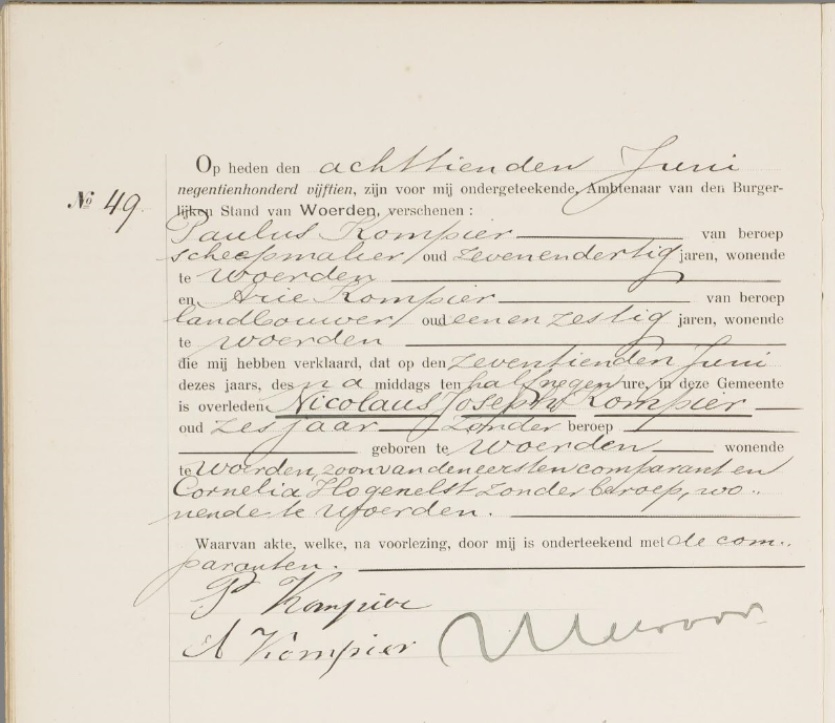 Op heden den achttienden Juni
negentienhonderd vijftien, zijn voor mij ondergeteekende, Ambtenaar van den Burger-
№ 49.
lijken Stand van Woerden, verschenen :
Paulus Kompier van beroep
scheepmaker oud zevenendertig jaren, wonende
te Woerden
en Arie Kompier van beroep
landbouwer oud een en zestig jaren, wonende
te Woerden
die mij hebben verklaard, dat op den zeventienden Juni
dezes jaars, des na middags ten half negen ure, in deze Gemeente
is overleden Nicolaus Joseph Kompier
oud zes jaar zonder beroep
geboren te Woerden wonende
te Woerden, zoon van den eersten comparant en
Cornelia Hogenelst zonder beroep, wo-
nende te Woerden.
Waarvan akte, welke, na voorlezing, door mij is onderteekend met de com-
paranten.
P Kompier
A Kompier